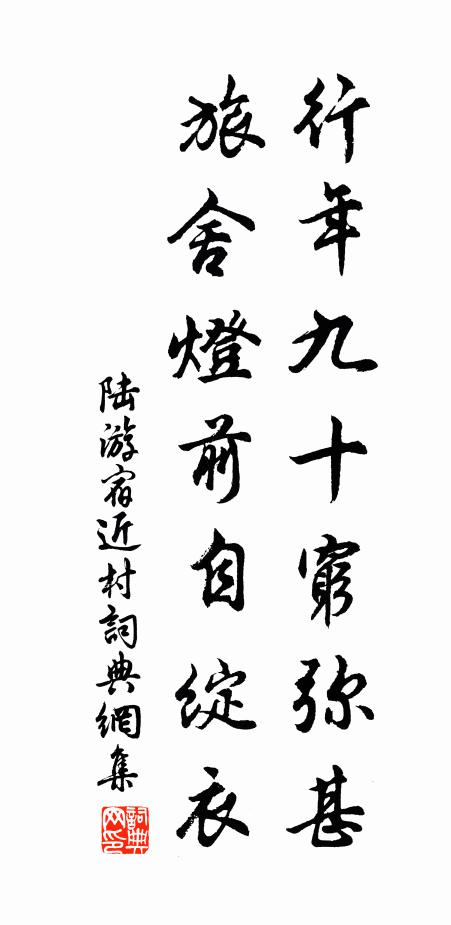 行年九十窮弥甚
旅舍燈前自綻衣
陆游宿近村詞典網集
詞典网印